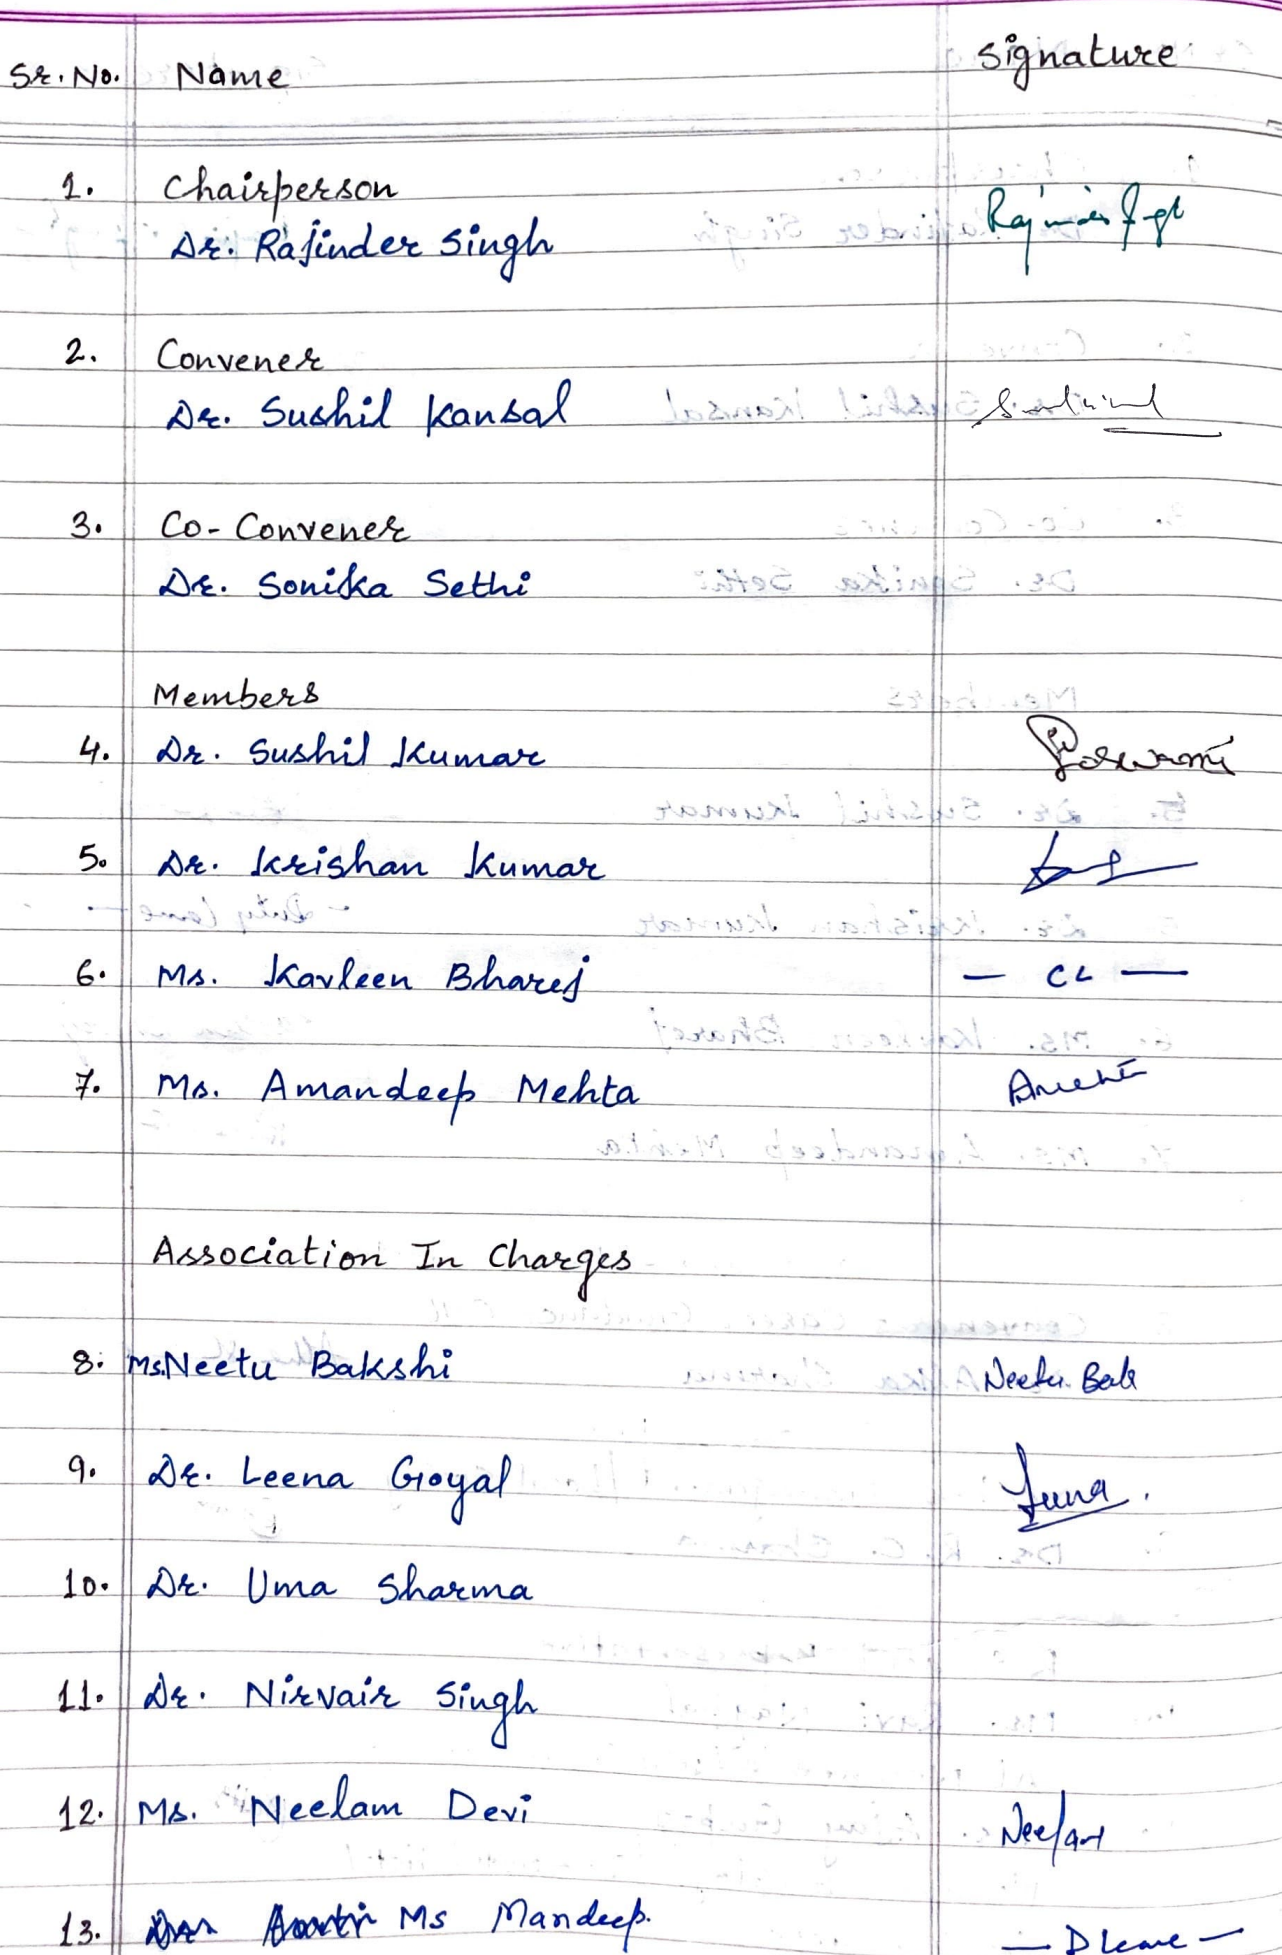 Sr. No. Name Signature
1. Chairperson
Dr. Rajinder Singh
2. Convener
Dr. Sushil Kansal
3. Co-Convener
Dr. Sonika Sethi
Members
4. Dr. Sushil Kumar
5. Dr. Krishan Kumar
6. Ms. Kavleen Bharej — CL —
7. Ms. Amandeep Mehta
Association In Charges
8. Ms. Neetu Bakshi Neetu Bak
9. Dr. Leena Goyal Leena.
10. Dr. Uma Sharma
11. Dr. Nirvair Singh
12. Ms. Neelam Devi Neelam
13. Ms Mandeep. — D leave —